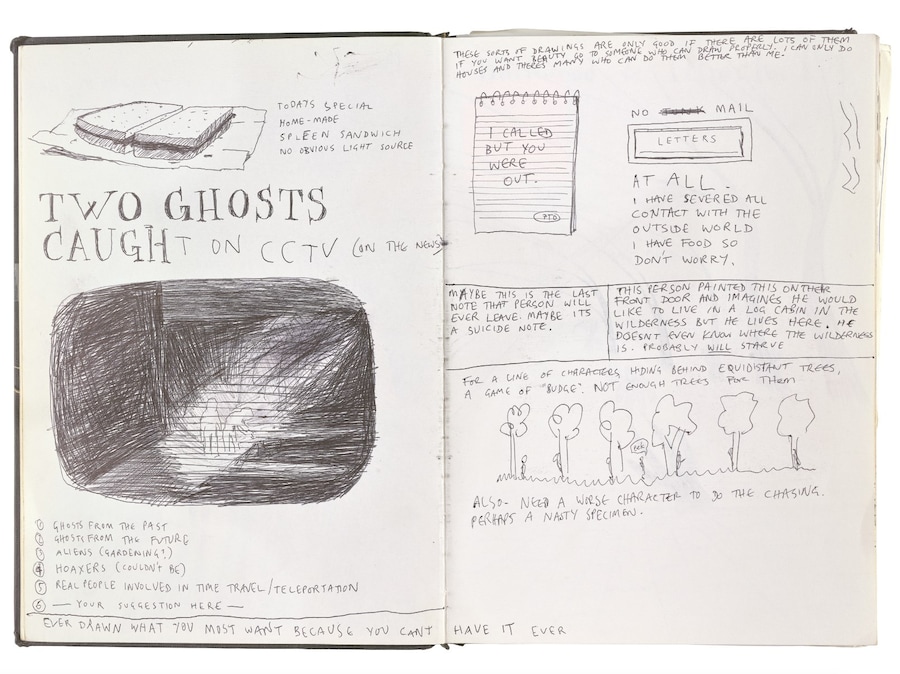 TODAYS SPECIAL
HOME-MADE
SPLEEN SANDWICH
NO OBVIOUS LIGHT SOURCE
TWO GHOSTS
CAUGHT ON CCTV (ON THE NEWS)
① GHOSTS FROM THE PAST
② GHOSTS FROM THE FUTURE
③ ALIENS (GARDENING?)
④ HOAXERS (COULDN'T BE)
⑤ REAL PEOPLE INVOLVED IN TIME TRAVEL/TELEPORTATION
⑥ — YOUR SUGGESTION HERE —
EVER DRAWN WHAT YOU MOST WANT BECAUSE YOU CANT HAVE IT EVER
THESE SORTS OF DRAWINGS ARE ONLY GOOD IF THERE ARE LOTS OF THEM
IF YOU WANT BEAUTY GO TO SOMEONE WHO CAN DRAW PROPERLY. I CAN ONLY DO
HOUSES AND THERES MANY WHO CAN DO THEM BETTER THAN ME.
I CALLED
BUT YOU
WERE
OUT.
PTO
NO JUNK MAIL
LETTERS
AT ALL.
I HAVE SEVERED ALL
CONTACT WITH THE
OUTSIDE WORLD
I HAVE FOOD SO
DON'T WORRY.
MAYBE THIS IS THE LAST
NOTE THAT PERSON WILL
EVER LEAVE. MAYBE ITS
A SUICIDE NOTE.
THIS PERSON PAINTED THIS ON THEIR
FRONT DOOR AND IMAGINES HE WOULD
LIKE TO LIVE IN A LOG CABIN IN THE
WILDERNESS BUT HE LIVES HERE. HE
DOESNT EVEN KNOW WHERE THE WILDERNESS
IS. PROBABLY WILL STARVE
FOR A LINE OF CHARACTERS HIDING BEHIND EQUIDISTANT TREES,
A GAME OF "BUDGE". NOT ENOUGH TREES FOR THEM
ALSO- NEED A WORSE CHARACTER TO DO THE CHASING.
PERHAPS A NASTY SPECIMEN.